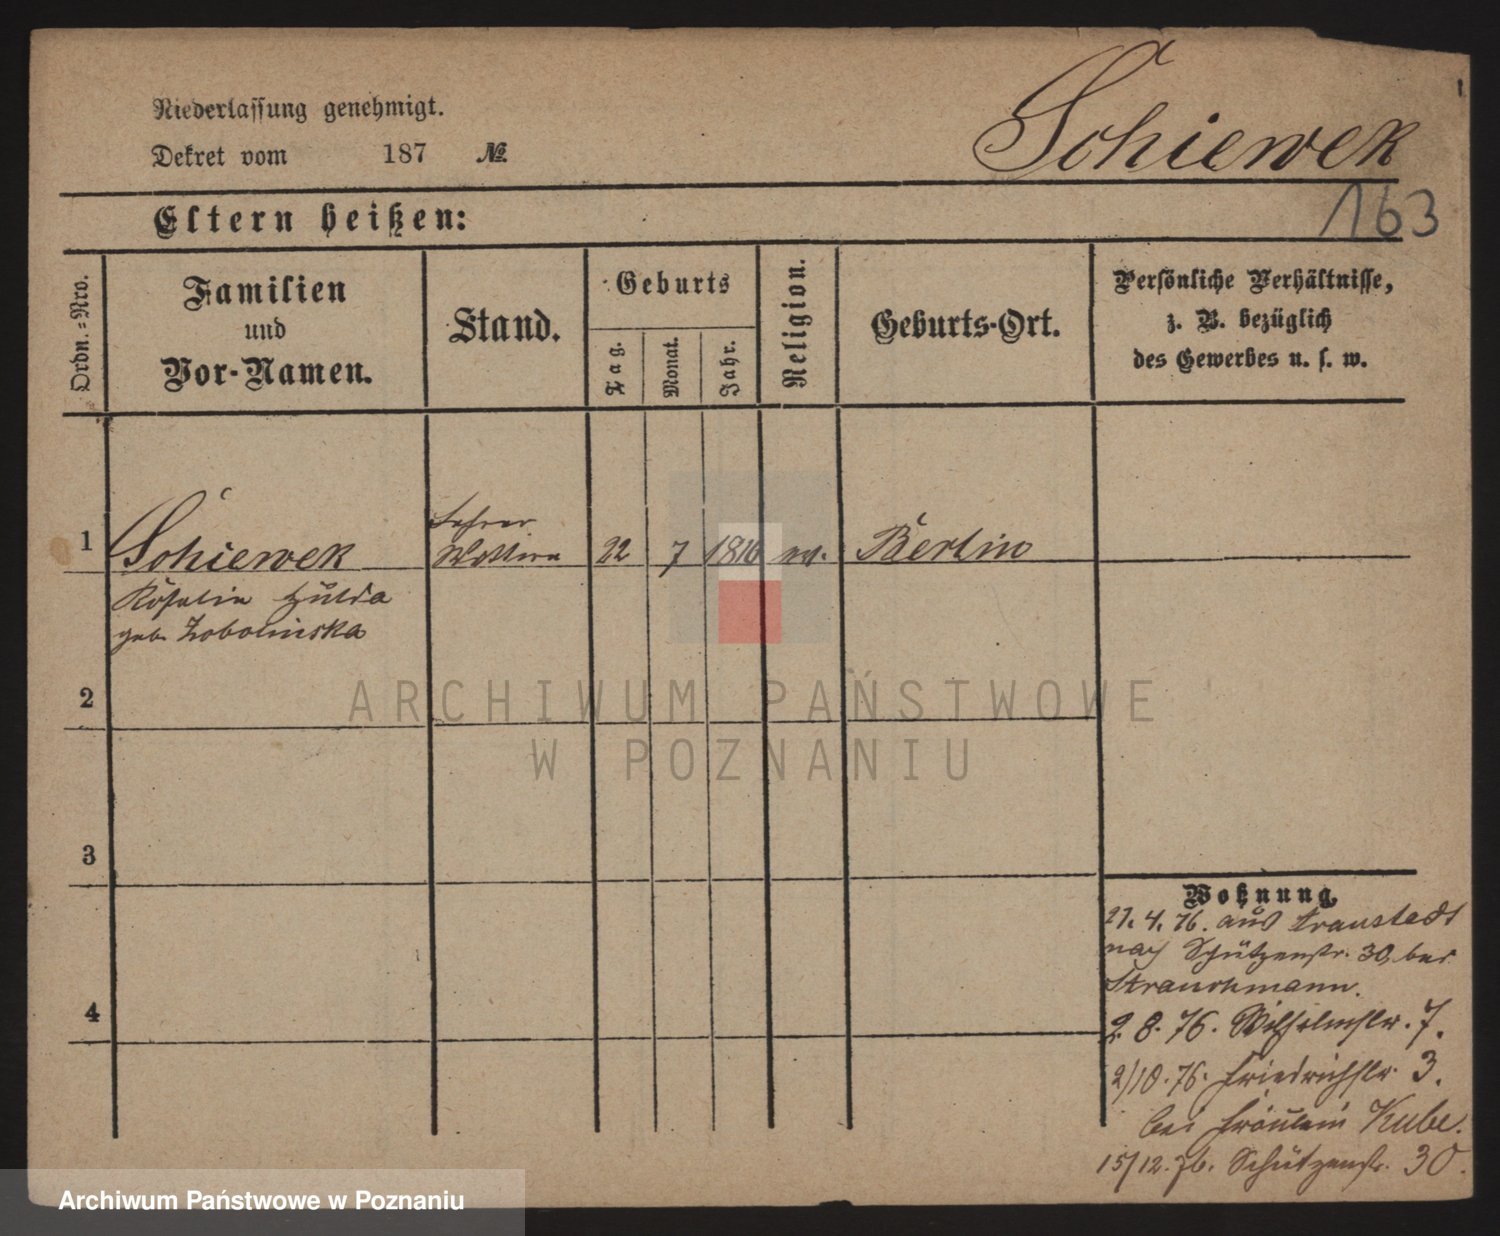 Niederlassung genehmigt.
Schiewek
Dekret vom 187 №
163
Eltern heißen:
Ordn.=Nro.
Familien und Vor-Namen.
Stand.
Geburts
Tag.
Monat.
Jahr.
Religion.
Geburts-Ort.
Persönliche Verhältnisse,
z. B. bezüglich
des Gewerbes u. s. w.
Lehrer
1 Schiewek Wittwe 22 7 1816 ev. Berlin
Rosalie Hulda
geb. Zobolinska
2
ARCHIWUM PAŃSTWOWE
W POZNANIU
3
4
Wohnung.
27. 4. 76. aus Fraustadt
nach Schützenstr. 30, bei
Strauchmann.
2. 8. 76. Wilhelmstr. 7.
2/10. 76. Friedrichstr. 3.
bei Fräulein Kube.
15/12. 76. Schützenstr. 30.
Archiwum Państwowe w Poznaniu